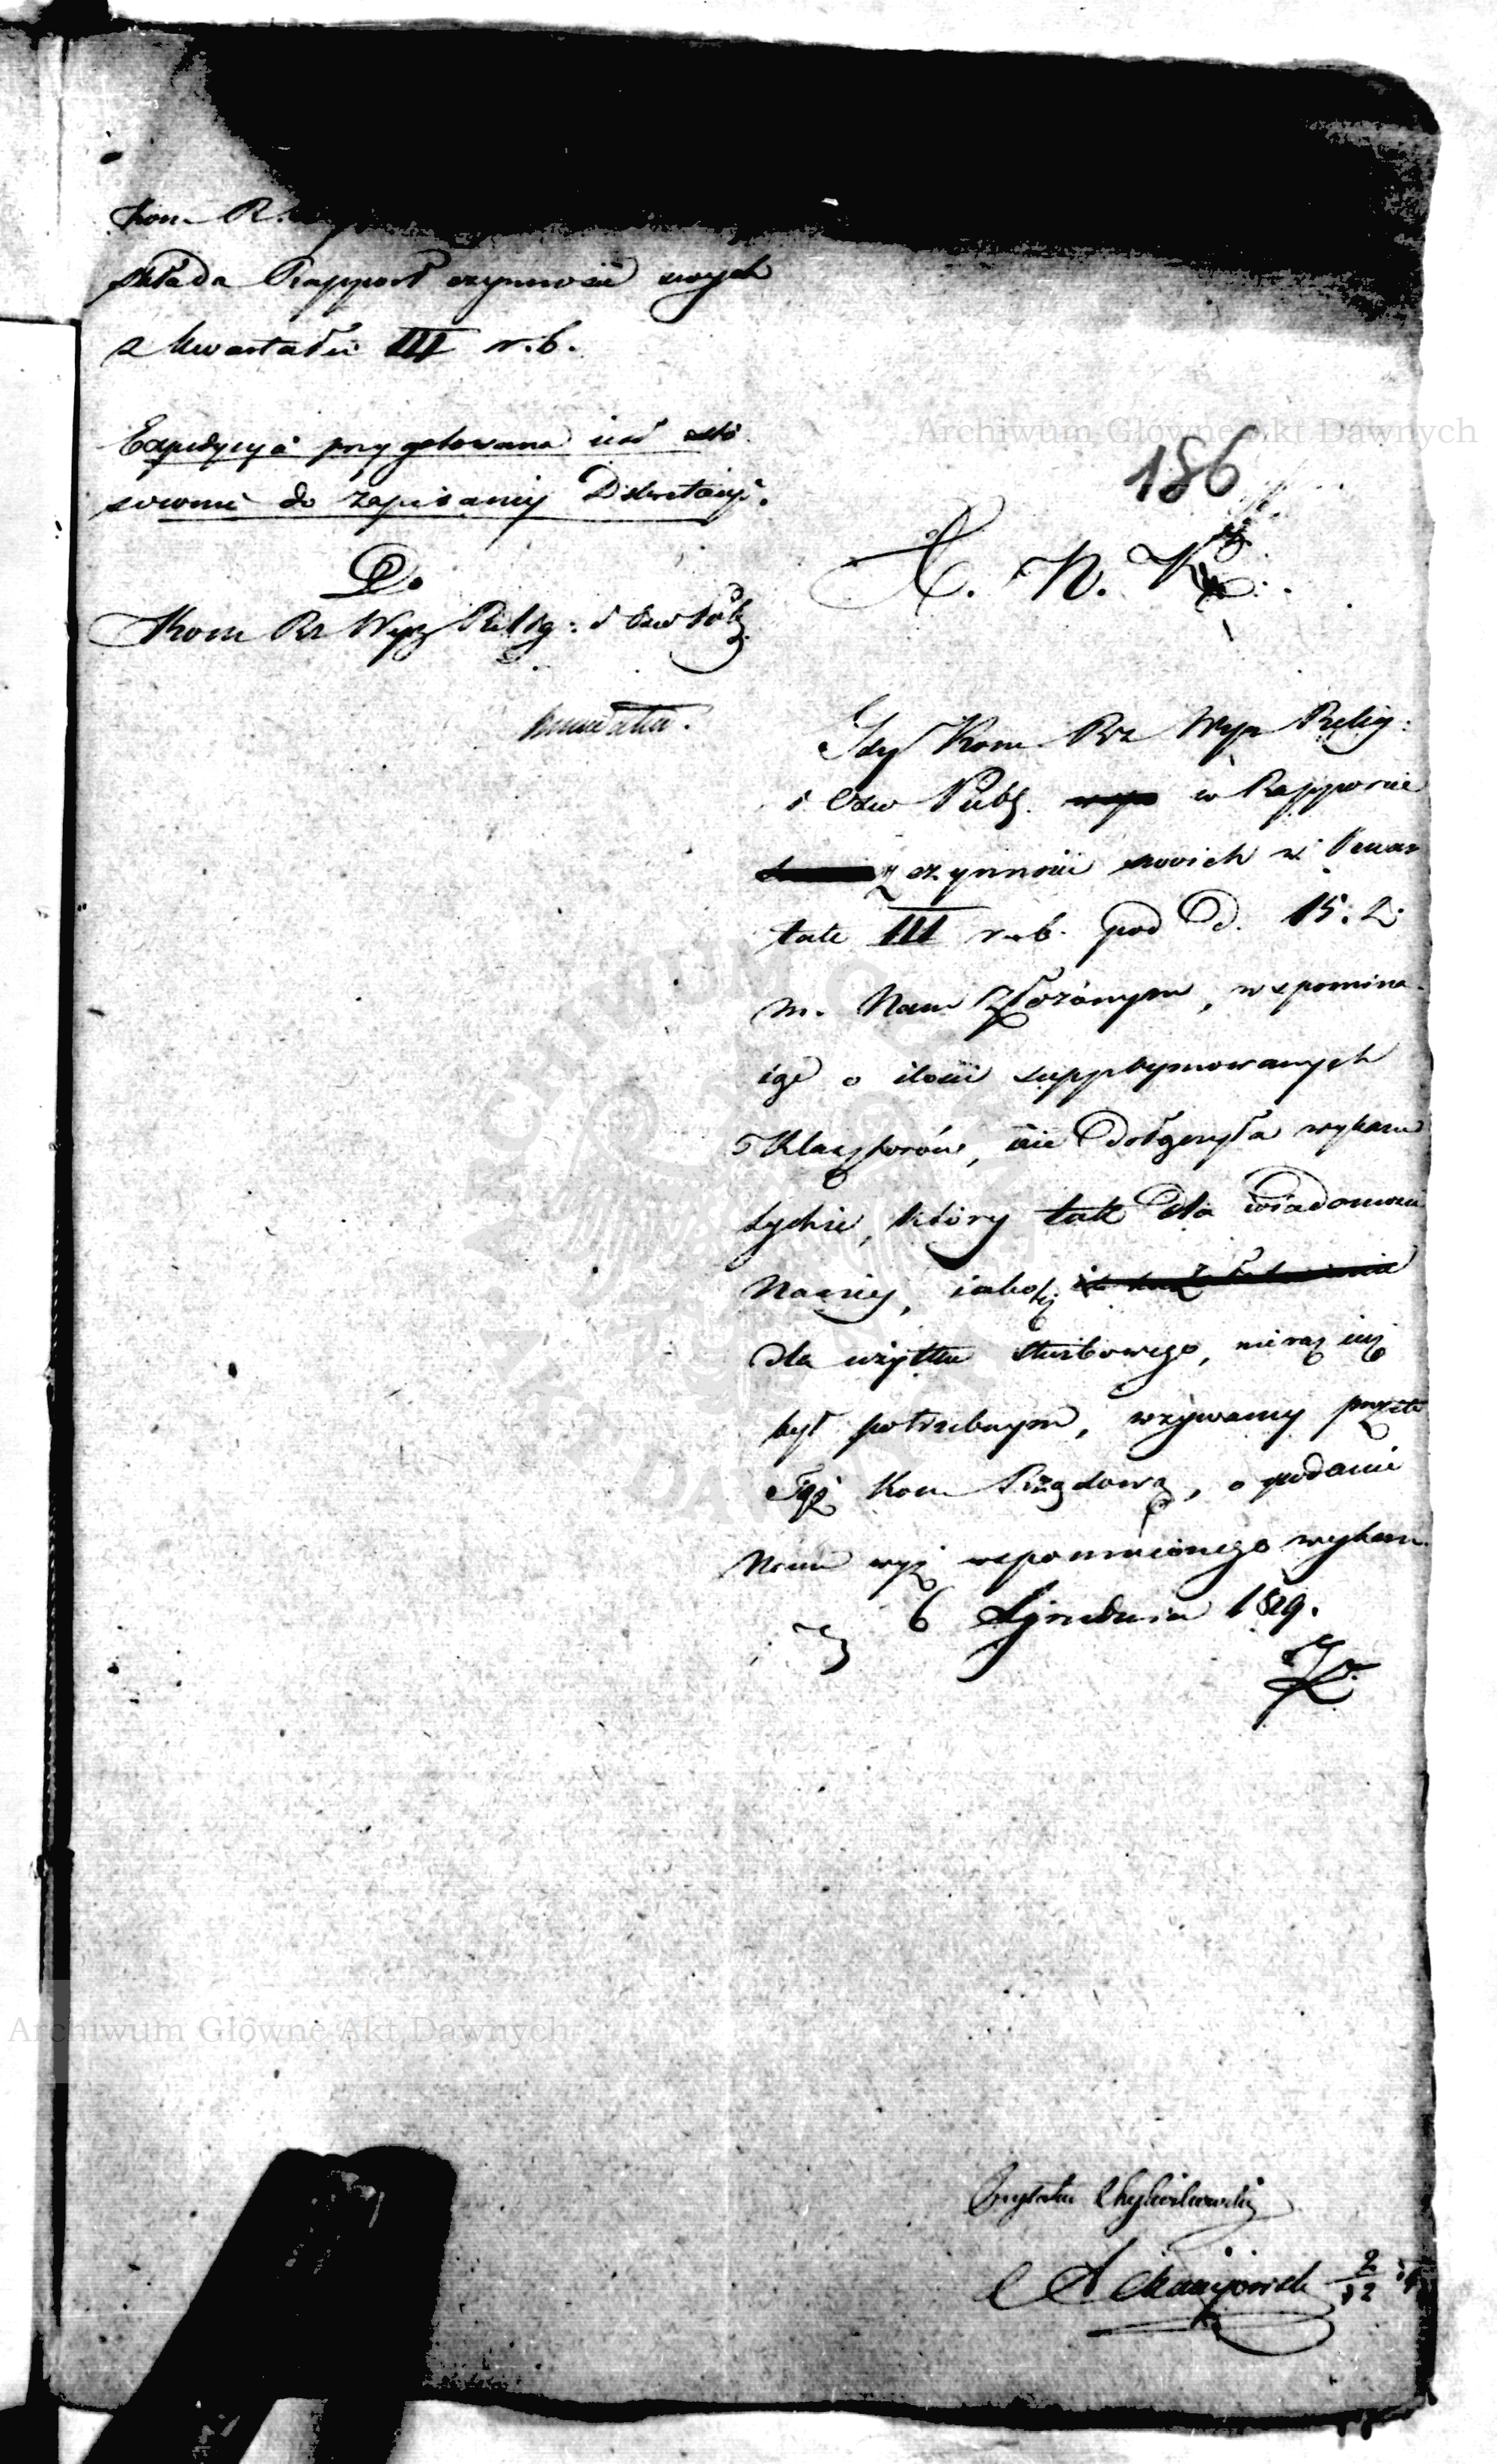 Kom R.
składa Rapport czynności swych
z kwartału III r. b.
Expedycya przygotowana iest sto-
sownie do zapisaney Dekretacyi.
Do
Kom Rz Wyz Relig: i Osw Publ
186
Gdy Kom Rz Wyz Relig:
i Osw Publ. w Rapporcie
z czynności swoich w kwar
tale III r. b. pod d. 15. z.
m. Nam złożonym, wspomina-
iąc o ilości supprymowanych
Klasztorów, nie dołączyła wykazu
tychże, który tak dla wiadomości
Naszey, iakoteż
dla użytku służbowego, nieraz iuż
był potrzebnym, wzywamy przeto
Tęż Kom Rządową, o podanie
Nam wyż wspomnionego wykazu
6 Grudnia 1819.
Archiwum Główne Akt Dawnych
Archiwum Główne Akt Dawnych